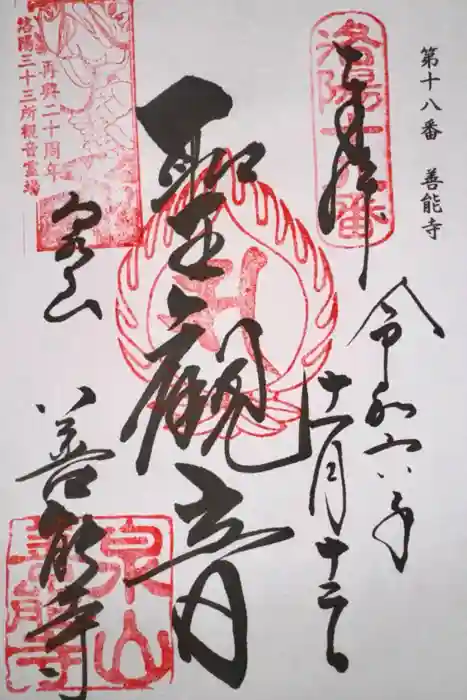 第十八番 善能寺
奉拝
洛陽十八番
令和六年
十一月十三日
聖観音
泉山
善能寺
再興二十周年
洛陽三十三所観音霊場
泉山
善能寺